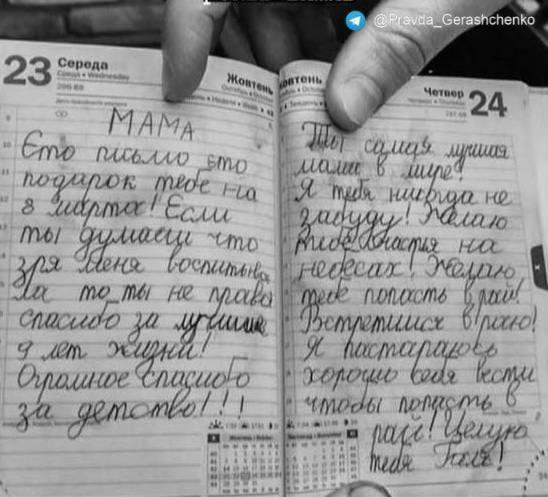 @Pravda_Gerashchenko
23 Середа
Среда • Wednesday
Жовтень
МАМА
Єто письмо єто
подарок тебе на
8 марта! Если
ты думаеш что
зря меня воспитыва
ла то ты не права
спасибо за лучшие
9 лет жизни!
Огромное спасибо
за детство!!!
Жовтень
Четвер 24
Ты самая лучшая
мама в мире!
Я тебя никогда не
забуду! Желаю
тебе счастья на
небесах! Желаю
тебе попасть в рай!
Встретимся в раю!
Я пастараюсь
хорошо себя вести
чтобы попасть в
рай! Целую
тебя Галя!